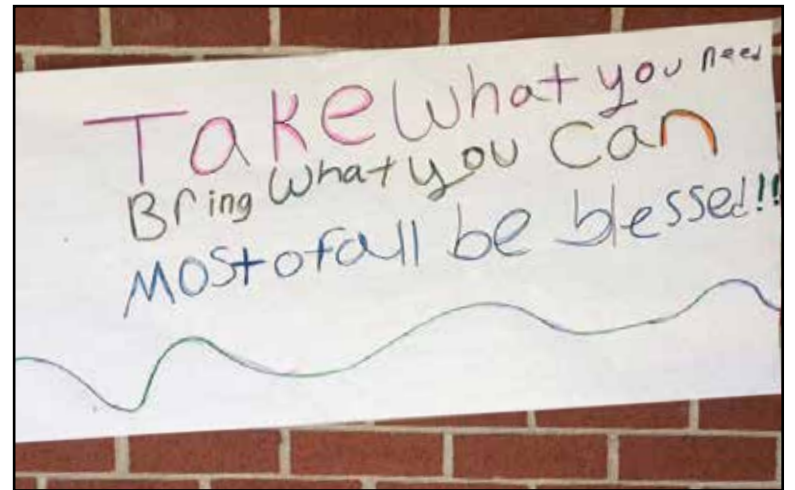 Take What you need
Bring What you Can
MOSt of all be blessed!!